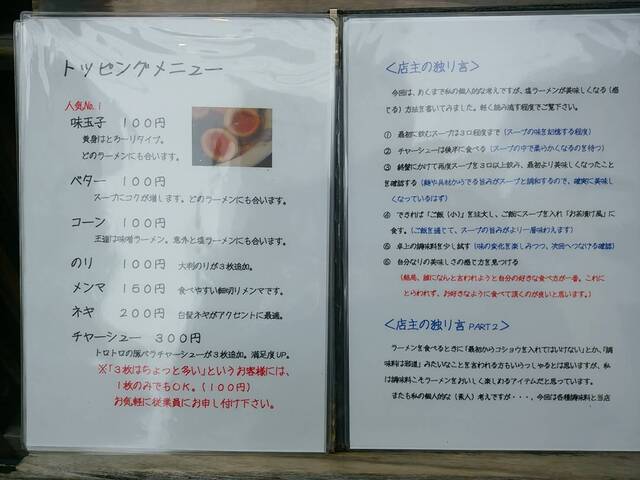 トッピングメニュー
人気No.1
味玉子 100円
黄身はとろーりタイプ。
どのラーメンにも合います。
バター 100円
スープにコクが増します。どのラーメンにも合います。
コーン 100円
王道は味噌ラーメン。意外と塩ラーメンにも合います。
のり 100円 大判のりが3枚追加。
メンマ 150円 食べやすい細切りメンマです。
ネギ 200円 白髪ネギがアクセントに最適。
チャーシュー 300円
トロトロの豚バラチャーシューが3枚追加。満足度UP。
※「3枚はちょっと多い」というお客様には、
1枚のみでもOK。(100円)
お気軽に従業員にお申し付け下さい。
<店主の独り言>
今回は、あくまで私の個人的な考えですが、塩ラーメンが美味しくなる(感
じる)方法を書いてみました。軽く読み流す程度でご覧下さい。
① 最初に飲むスープは3口程度まで(スープの味を記憶する程度)
② チャーシューは後半に食べる(スープの中で柔らかくなるのを待つ)
③ 終盤にかけて再度スープを3口以上飲み、最初より美味しくなったこと
を確認する(麺や具材からでる旨みがスープと調和するので、確実に美味し
くなっているはず)
④ できれば「ご飯(小)」を注文し、ご飯にスープを入れ「お茶漬け風」に
食す。(ご飯を通じて、スープの旨みがより一層味わえます)
⑤ 卓上の調味料を少し試す(味の変化を楽しみつつ、次回へつなげる確認)
⑥ 自分なりの美味しさの感じ方を見つける
(結局、誰になんと言われようと自分の好きな食べ方が一番。これに
とらわれず、お好きなように食べて頂くのが良いと思います。)
<店主の独り言 PART2>
ラーメンを食べるときに「最初からコショウを入れてはいけない」とか、「調
味料は邪道」みたいなことを言われる方もいらっしゃるとは思いますが、私
は調味料こそラーメンをおいしく楽しめるアイテムだと思っています。
またも私の個人的な(素人)考えですが・・・、今回は各種調味料と当店